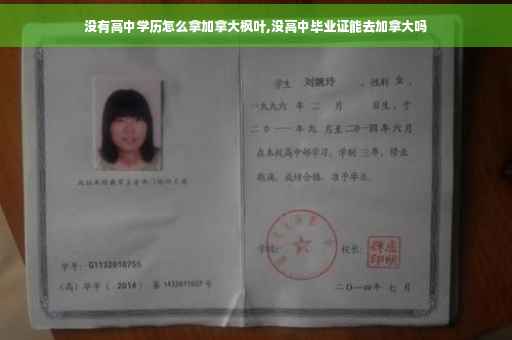 没有高中学历怎么拿加拿大枫叶,没高中毕业证能去加拿大吗
学生 刘婉玲 ，性别 女 ，
一九九六 年 二 月 日生，于
二〇一一 年 九 月至 二〇一四 年 六 月
在本校高中部学习，学制 三 年，修业
期满，成绩合格，准予毕业。
学校： 校长：
学号： G1132010755
（高）毕字（ 2014 ）第 1432011027 号
二〇一四年 七 月